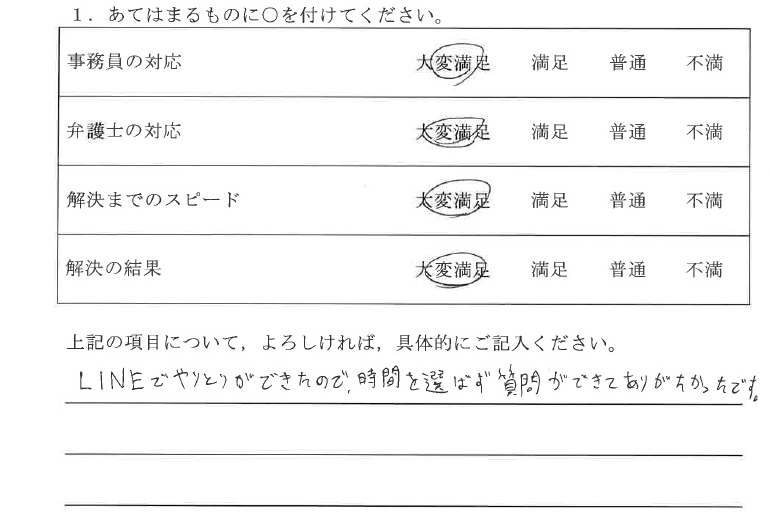 １．あてはまるものに○を付けてください。
事務員の対応　大変満足　満足　普通　不満
弁護士の対応　大変満足　満足　普通　不満
解決までのスピード　大変満足　満足　普通　不満
解決の結果　大変満足　満足　普通　不満
上記の項目について，よろしければ，具体的にご記入ください。
LINEでやりとりができたので、時間を選ばず質問ができてありがたかったです。